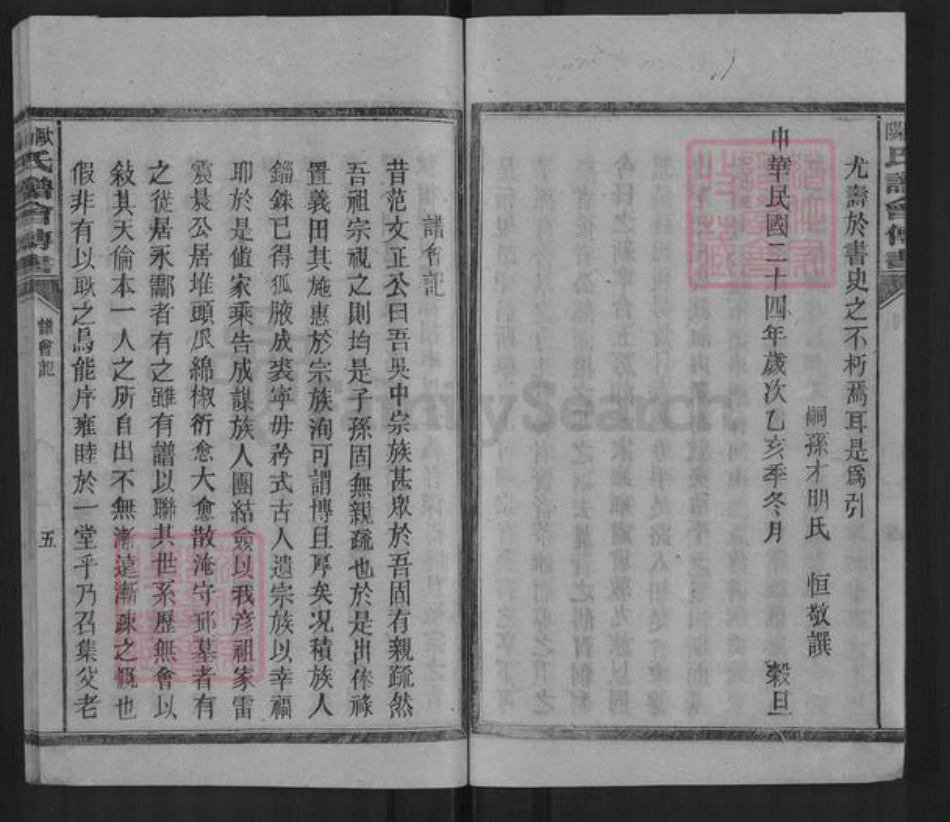 尤壽於書史之不朽焉耳是為引
嗣孫才明氏 恒敬譔
中華民國二十四年歲次乙亥季冬月 穀旦
譜會記
昔范文正公曰吾吳中宗族甚眾於吾固有親疏然
吾祖宗視之則均是子孫固無親疏也於是出俸祿
置義田其施惠於宗族洵可謂博且厚矣况積族人
錙銖已得狐腋成裘寧毋矜式古人遺宗族以幸福
耶於是僱家乘告成謀族人團結僉以我彦祖家雷
震晸公居堆頭瓜綿椒衍愈大愈散淹守邱墓者有
之徙居永酃者有之雖有譜以聯其世系歷無會以
敍其天倫本一人之所自出不無漸遠漸疎之慨也
假非有以联之烏能序雍睦於一堂乎乃召集父老
歐氏譜會傳書
譜會記
五
FamilySearch